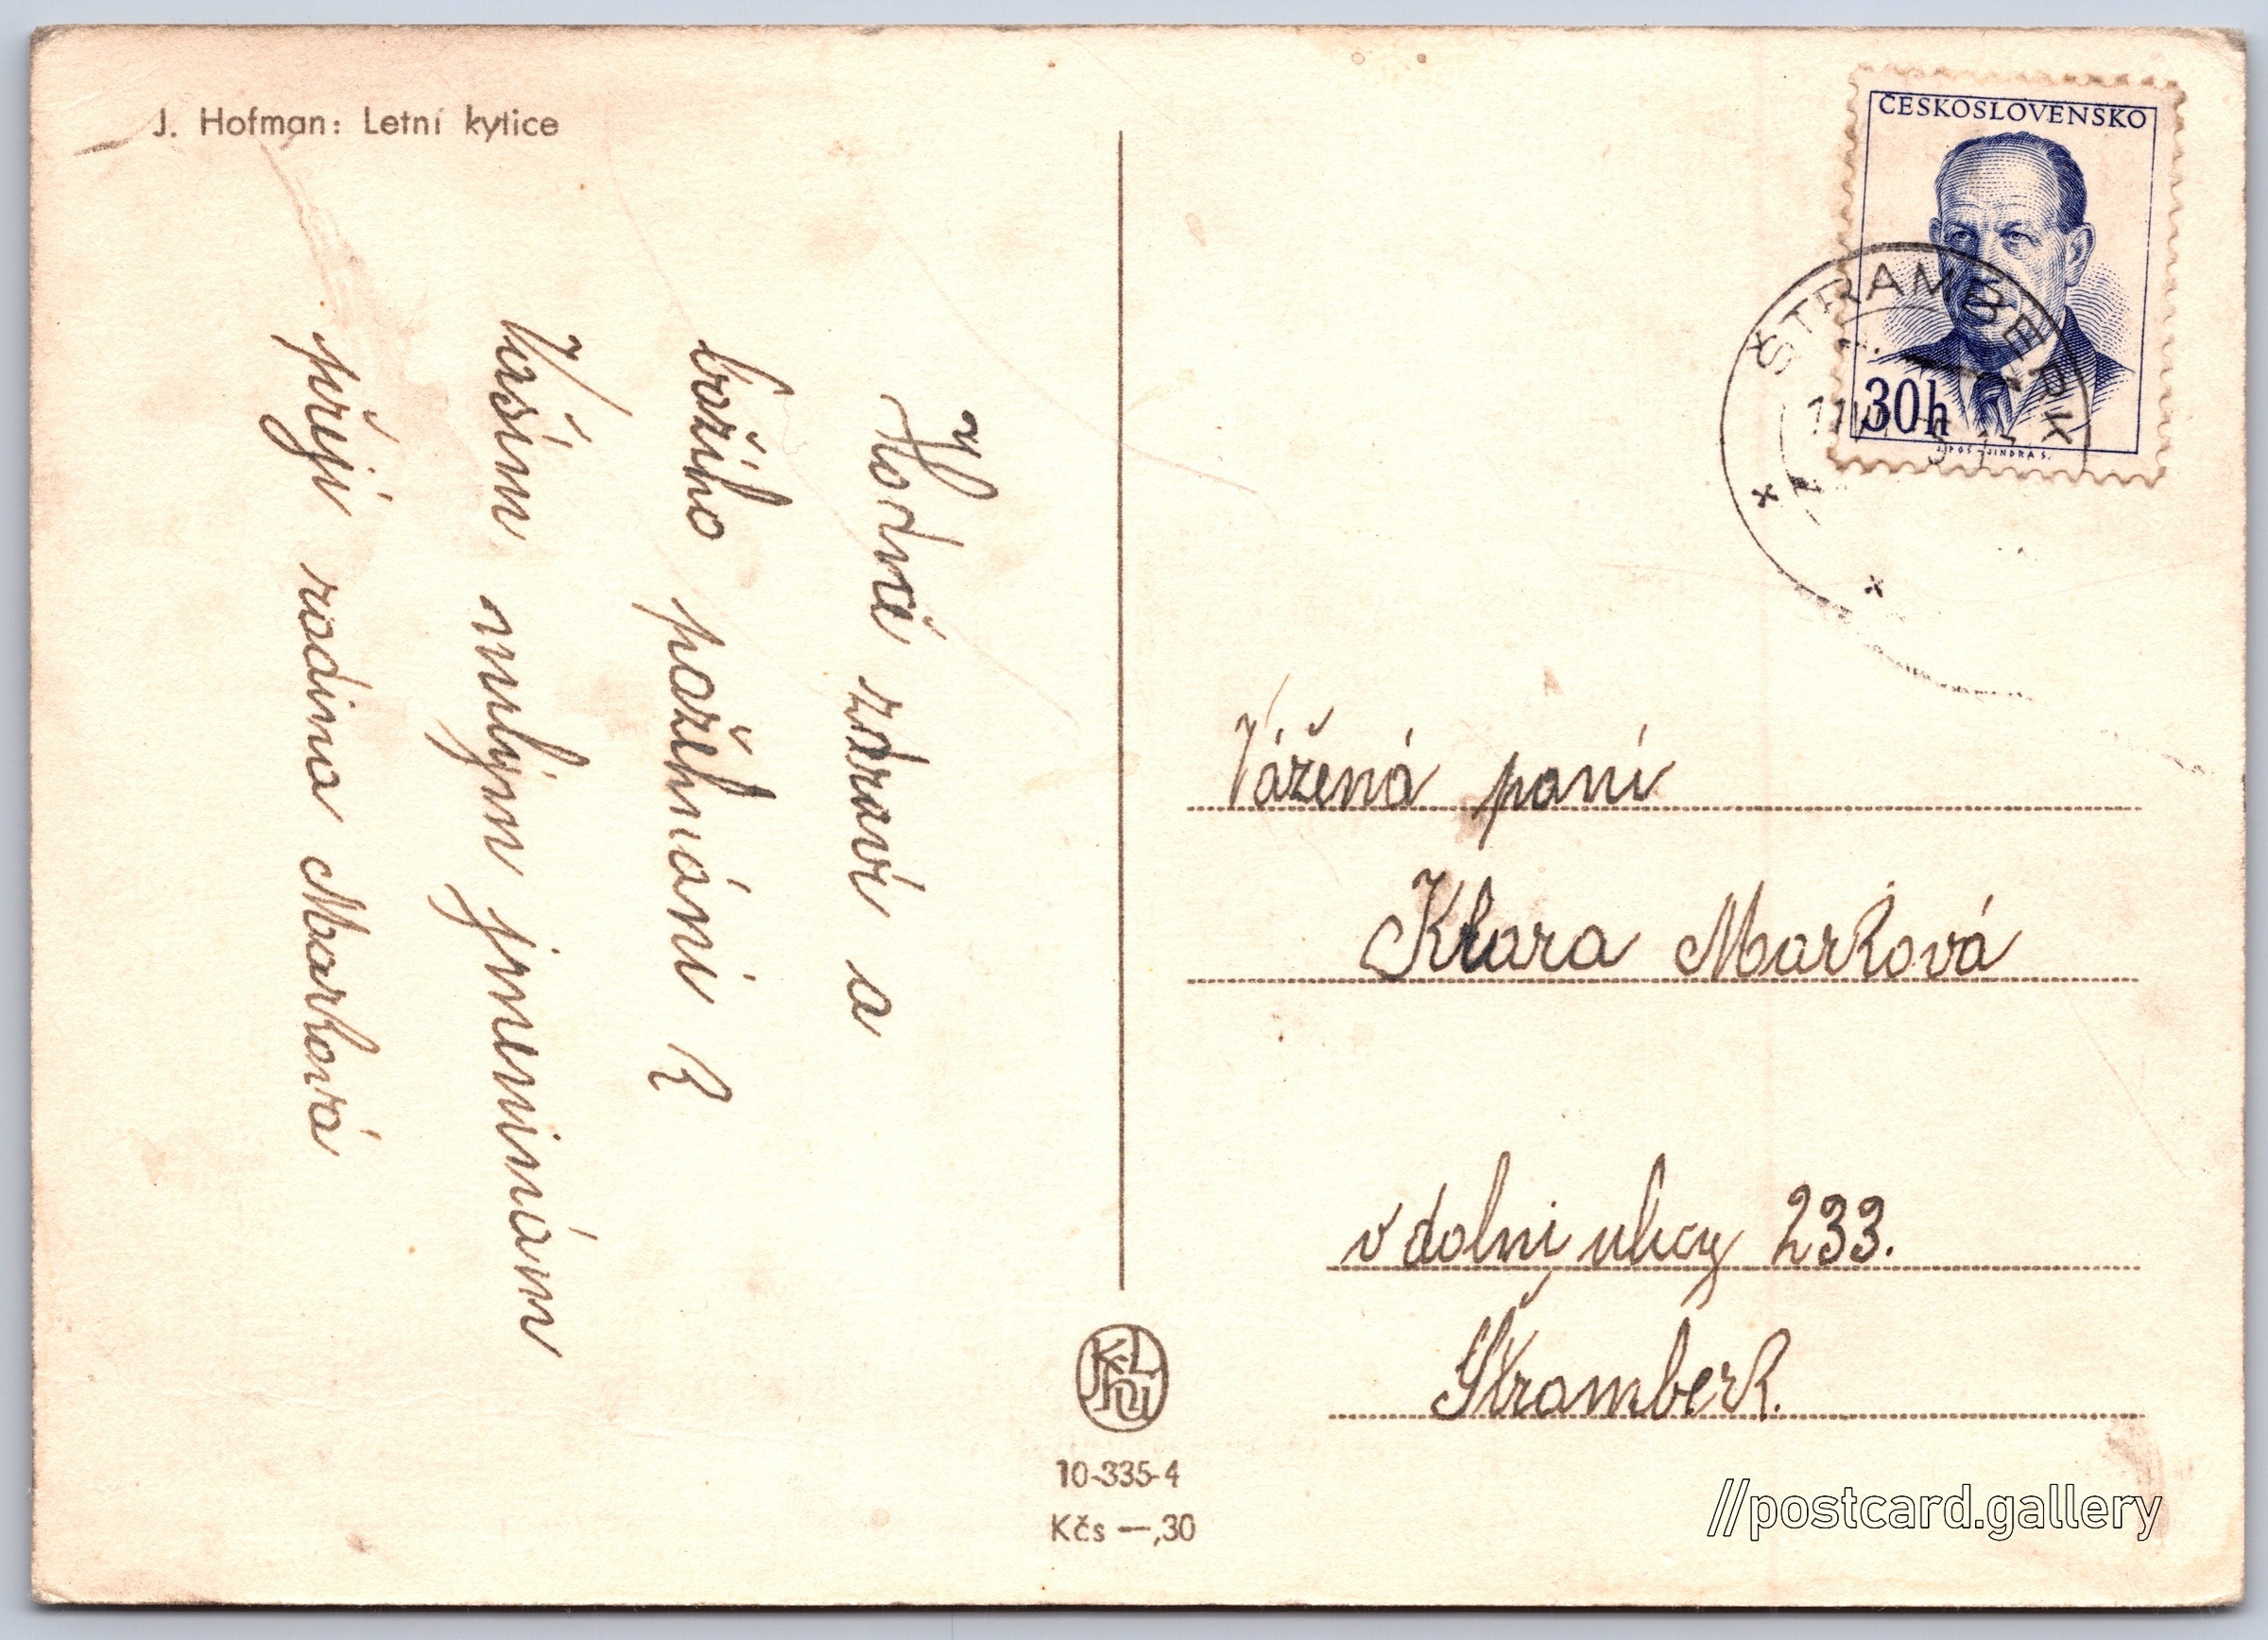 J. Hofman: Letní kytice
Hodně zdraví a
božího požehnání k
Vaším milým jmeninám
přeji rodina Marková
ČESKOSLOVENSKO
30h
J. JINDRA S.
ŠTRAMBERK
Vážená paní
Klara Marková
v dolni ulicy 233.
Štramberk.
10-335-4
Kčs —,30
//postcard.gallery